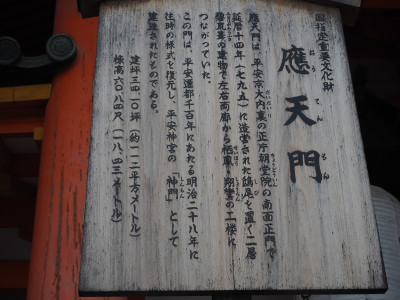 國指定重要文化財
應天門
おうてんもん
應天門は、平安京大内裏の正庁朝堂院の南面正門で
延暦十四年（七九五）に造営された鴟尾を置く二層
碧瓦葺の建物で左右両廊から栖鳳・翔鸞の二楼に
つながっていた。
この門は、平安遷都千百年にあたる明治二十八年に
往時の様式を復元し、平安神宮の「神門」として
建造されたものである。
建坪三四・〇坪（約一一二平方メートル）
棟高六〇・八四尺（一八・四三メートル）